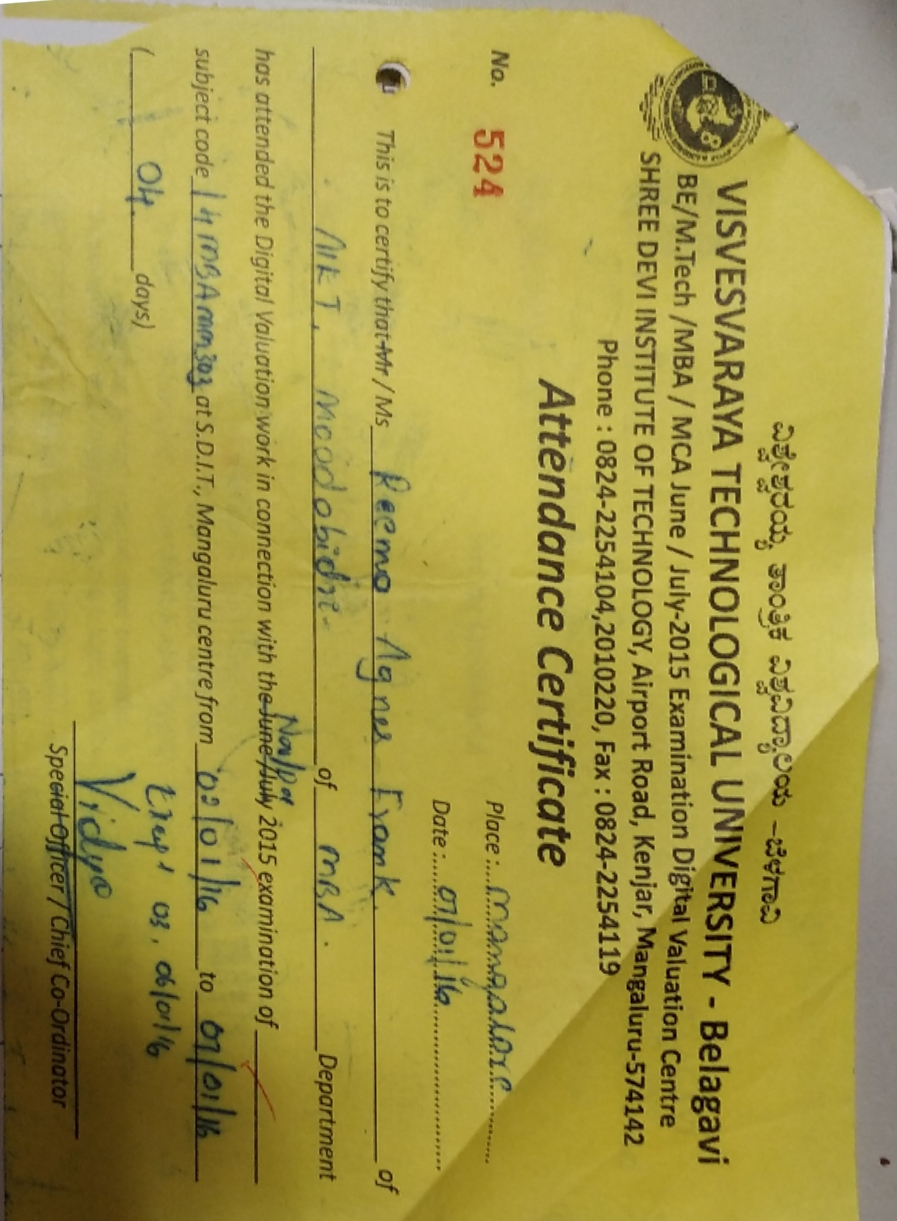 ವಿಶ್ವೇಶ್ವರಯ್ಯ ತಾಂತ್ರಿಕ ವಿಶ್ವವಿದ್ಯಾಲಯ -ಬೆಳಗಾವಿ
VISVESVARAYA TECHNOLOGICAL UNIVERSITY - Belagavi
BE/M.Tech /MBA / MCA June / July-2015 Examination Digital Valuation Centre
SHREE DEVI INSTITUTE OF TECHNOLOGY, Airport Road, Kenjar, Mangaluru-574142
Phone : 0824-2254104,2010220, Fax : 0824-2254119
Attendance Certificate
No. 524
Place : Mangalore
Date : 07/01/16
This is to certify that Mr / Ms Reema Agnes Frank. of
Moodabidri of MBA. Department
has attended the Digital Valuation work in connection with the June/July 2015 examination of
subject code 14MBAMM303 at S.D.I.T., Mangaluru centre from 02/01/16 to 07/01/16
( 04 days)
Except 03, 06/01/16
Vidya
Special Officer / Chief Co-Ordinator